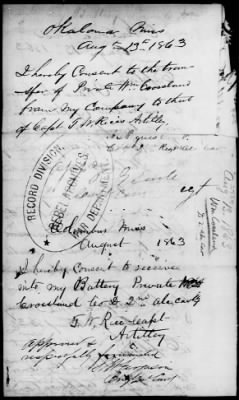 Okalona Miss
Aug 13th 1863
I hereby Consent to the tran-
sfer of Private Wm Crossland
from my Company to that
of Capt T. W. Rices Artilly
Capt
RECORD DIVISION
REBEL ARCHIVES
WAR DEPARTMENT
Columbus Miss
August 1863
I hereby Consent to receive
into my Battery Private Wm
Crossland Co D 2nd ala cavly
T. W. Rice Capt
Artillry
Approved &
respectfully forwarded
Aug 13 1863
Wm Crossland